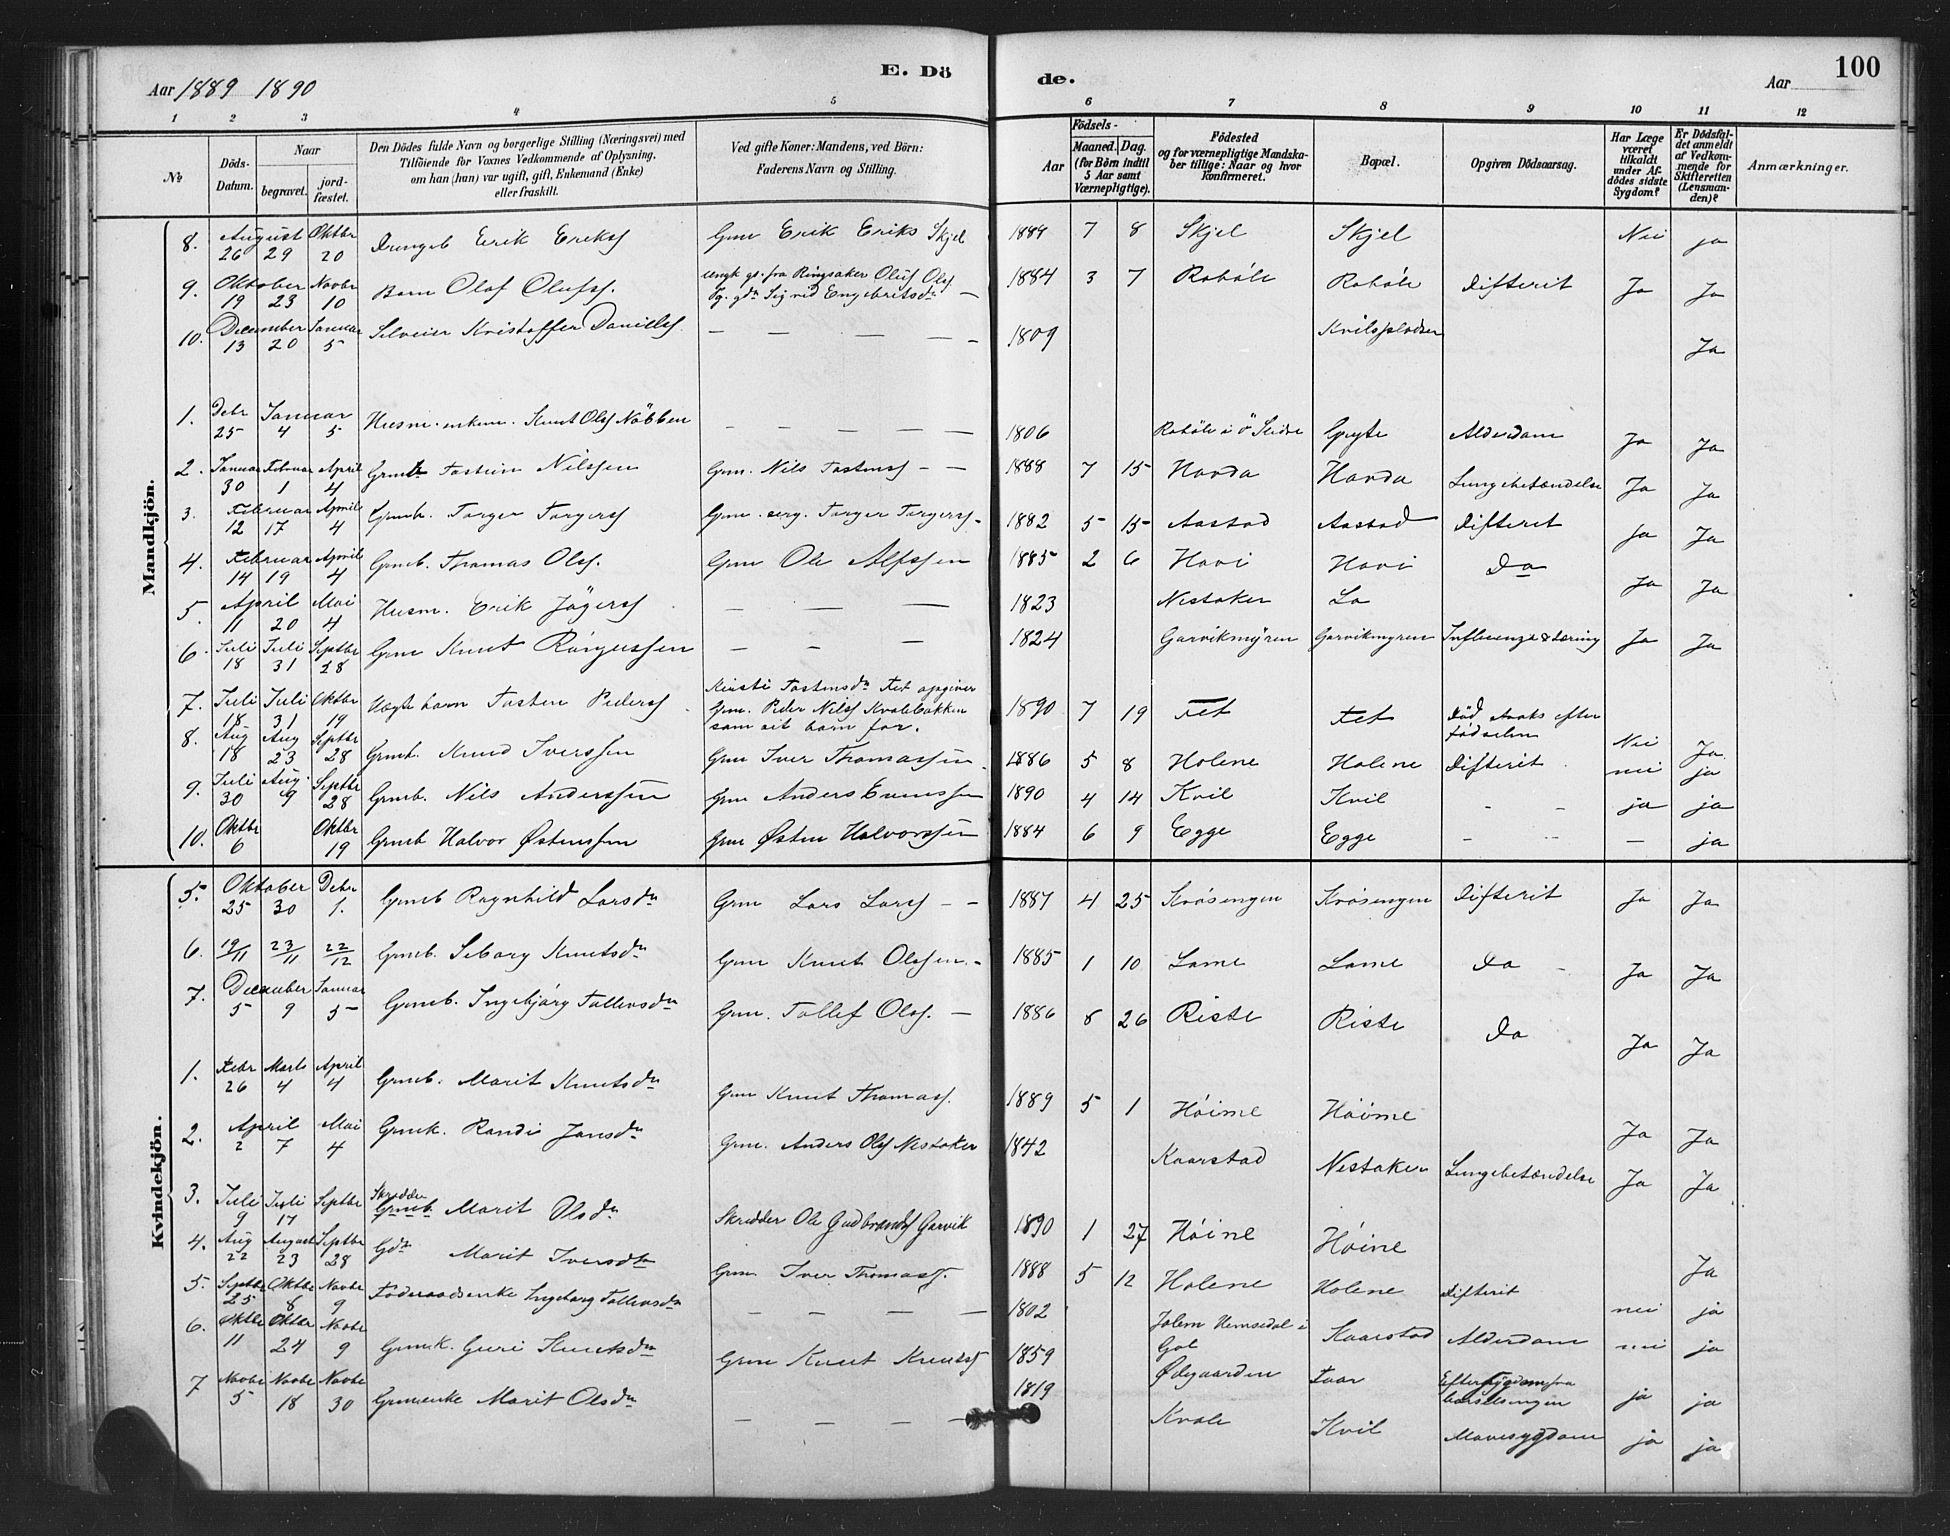 Aar 1889 1890
E. Dö
de.
Aar
100
1 2 3 4 5 6 7 8 9 10 11 12
No
Döds-Datum.
Naar
begravet.
jord-fæstet.
Den Dödes fulde Navn og borgerlige Stilling (Næringsvei) med Tilföiende for Voxnes Vedkommende af Oplysning, om han (hun) var ugift, gift, Enkemand (Enke) eller fraskilt.
Ved gifte Koner: Mandens, ved Börn: Faderens Navn og Stilling.
Födsels-
Aar
Maaned. Dag.
(for Börn indtil 5 Aar samt Værnepligtige).
Födested og for værnepligtige Mandskaber tillige: Naar og hvor konfirmeret.
Bopæl.
Opgiven Dödsaarsag.
Har Læge været tilkaldt under Afdödes sidste Sygdom?
Er Dödsfaldet anmeldt af Vedkommende for Skifteretten (Lensmanden)?
Anmærkninger.
Mandkjön.
8. August 26 29 Oktbr 20 Drengeb Erik Eriks Gm Erik Eriks Skjel 1889 7 8 Skjel Skjel Nei ja
9. Oktober 19 23 Novbr 10 Barn Olaf Olufss. ugift gs. fra Ringsaker Oluf Olss Pg. gdr Sigrid Engebritsdr — 1884 3 7 Robøle Robøle Difterit Ja Ja
10. December 13 20 Januar 5 Kristoffer Danielss. — — — — 1809 Kvilspladsen Ja
1. Debr 25 Januar 4 5 Husm. enkem. Knut Olss Nöbben — — — — — 1806 Robøle i Ö Slidre Gryte Alderdom Ja Ja
2. Januar 30 Februar 1 April 4 Grmb Tostein Nilssen Gm. Nils Tostenss — — 1888 7 15 Horda Horda Lungebetændelse Ja Ja
3. Februar 12 17 April 4 Gmb. Torger Torgerss Gm. serg. Torger Torgerss — 1882 5 15 Aastad Aastad Difterit Ja Ja
4. Februar 14 19 April 4 Gmb. Thomas Olss. Gm Ole Alfssen 1885 2 6 Hovi Hovi Do Ja Ja
5. April 11 20 Mai 4 Husm. Erik Jögerss — — — 1823 Nestaker Lo
6. Juli 18 Juli 31 Septbr 28 Gm Knut Rörgussen — — — 1824 Garvikmyren Garvikmyren Influenza & tæring Ja Ja
7. Juli 18 Juli 31 Oktbr 19 Uægte barn Tosten Pederss Kirsti Tostensdr Fet opgiver Gm. Peder Nilss Kvalebakken som sit barn far. 1890 7 19 Fet Fet Död straks efter födselen Nei Ja
8. Aug 18 Aug 23 Septbr 28 Gmb. Knud Iverssen Gm Iver Thomassen 1886 5 8 Holene Holene Difterit nei ja
9. Juli 30 Aug. 9 Septbr 28 Gmb. Nils Anderssen Gm Anders Evenssen 1890 4 14 Kvil Kvil - - ja ja
10. Oktbr 6 Oktbr 19 Gmb Halvor Østenssen Gm Østen Halvorssen 1884 6 9 Egge Egge - - — ja
Kvindekjön.
5. Oktober 25 30 Debr 1. Gmb Ragnhild Larsdr Gm Lars Larss — — 1887 4 25 Krøsengen Krøsengen Difterit Ja Ja
6. 19/11 23/11 22/12 Gmb. Siborg Knutsdr Gm Knut Olssen. — 1885 1 10 Lome Lome Do Ja Ja
7. December 5 9 Januar 5 Gmb. Ingebjørg Tollevsdr Gm. Tollef Olss. — 1886 8 26 Riste Riste Do Ja Ja
1. Febr 26 Marts 4 April 4 Gmb. Marit Knutsdr Gm Knut Thomass. 1889 5 1 Höime Höime Ja Ja
2. April 2 7 Mai 4 Gmk. Randi Jonsdr Gm. Anders Olss Nestaker 1842 Kaarstad Nestaker Lungebetændelse Ja Ja
3. Juli 9 Juli 17 Septbr Skrædder Gmb Marit Olsdr Skrædder Ole Gudbrandss Garvik 1890 1 27 Höine Höine Ja
4. Aug 22 August 23 Septbr 28 Gdr Marit Iversdtr Gm. Iver Thomass. 1888 5 12 Holene Holene Difterit nei ja
5. Septbr 25 Oktbr 8 Novbr 9 Föderaadsenke Ingeborg Tollevsdr — — — — 1802 Jolem Hemsedal i Gol Kaarstad Alderdom nei ja
6. Oktbr 11 Oktbr 24 Novbr 9 Gmk. Guri Knutsdr Gm Knut Knutss 1859 Ødegaarden Foar Eftersygdom fra barselsengen ja ja
7 Novbr 5 Novbr 18 Novbr 30 Gmenke Marit Olsdr — — — — 1819 Kvale Kvil Mavesygdom ja ja